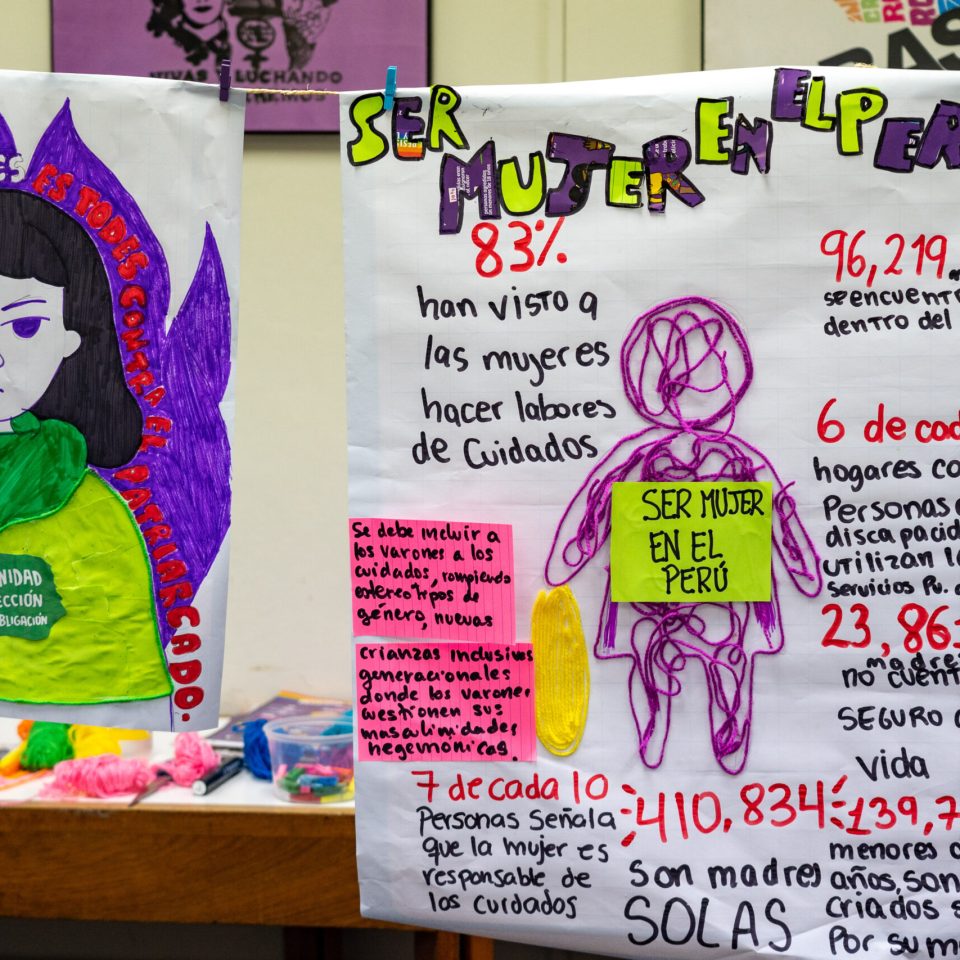 VIVAS Y LUCHANDO
SER
MUJER EN EL PER
ES TODES CONTRA EL PATRIARCADO.
NIDAD
ECCIÓN
BLIGACIÓN
83%
han visto a
las mujeres
hacer labores
de Cuidados
Se debe incluir a
los varones a los
cuidados, rompiendo
estereotipos de
género, nuevas
crianzas inclusivas
generacionales
donde los varones
cuestionen sus
masculinidades
hegemonicas.
SER MUJER
EN EL
PERÚ
7 de cada 10
Personas Señala
que la mujer es
responsable de
los cuidados
410,834
Son madres
SOLAS
96,219
se encuent
dentro del
6 de cad
hogares co
Personas
discapacid
utilizan l
servicios Pu.
23,86
madre
no cuent
SEGURO
vida
139,7
menores
años, son
criados s
Por su m